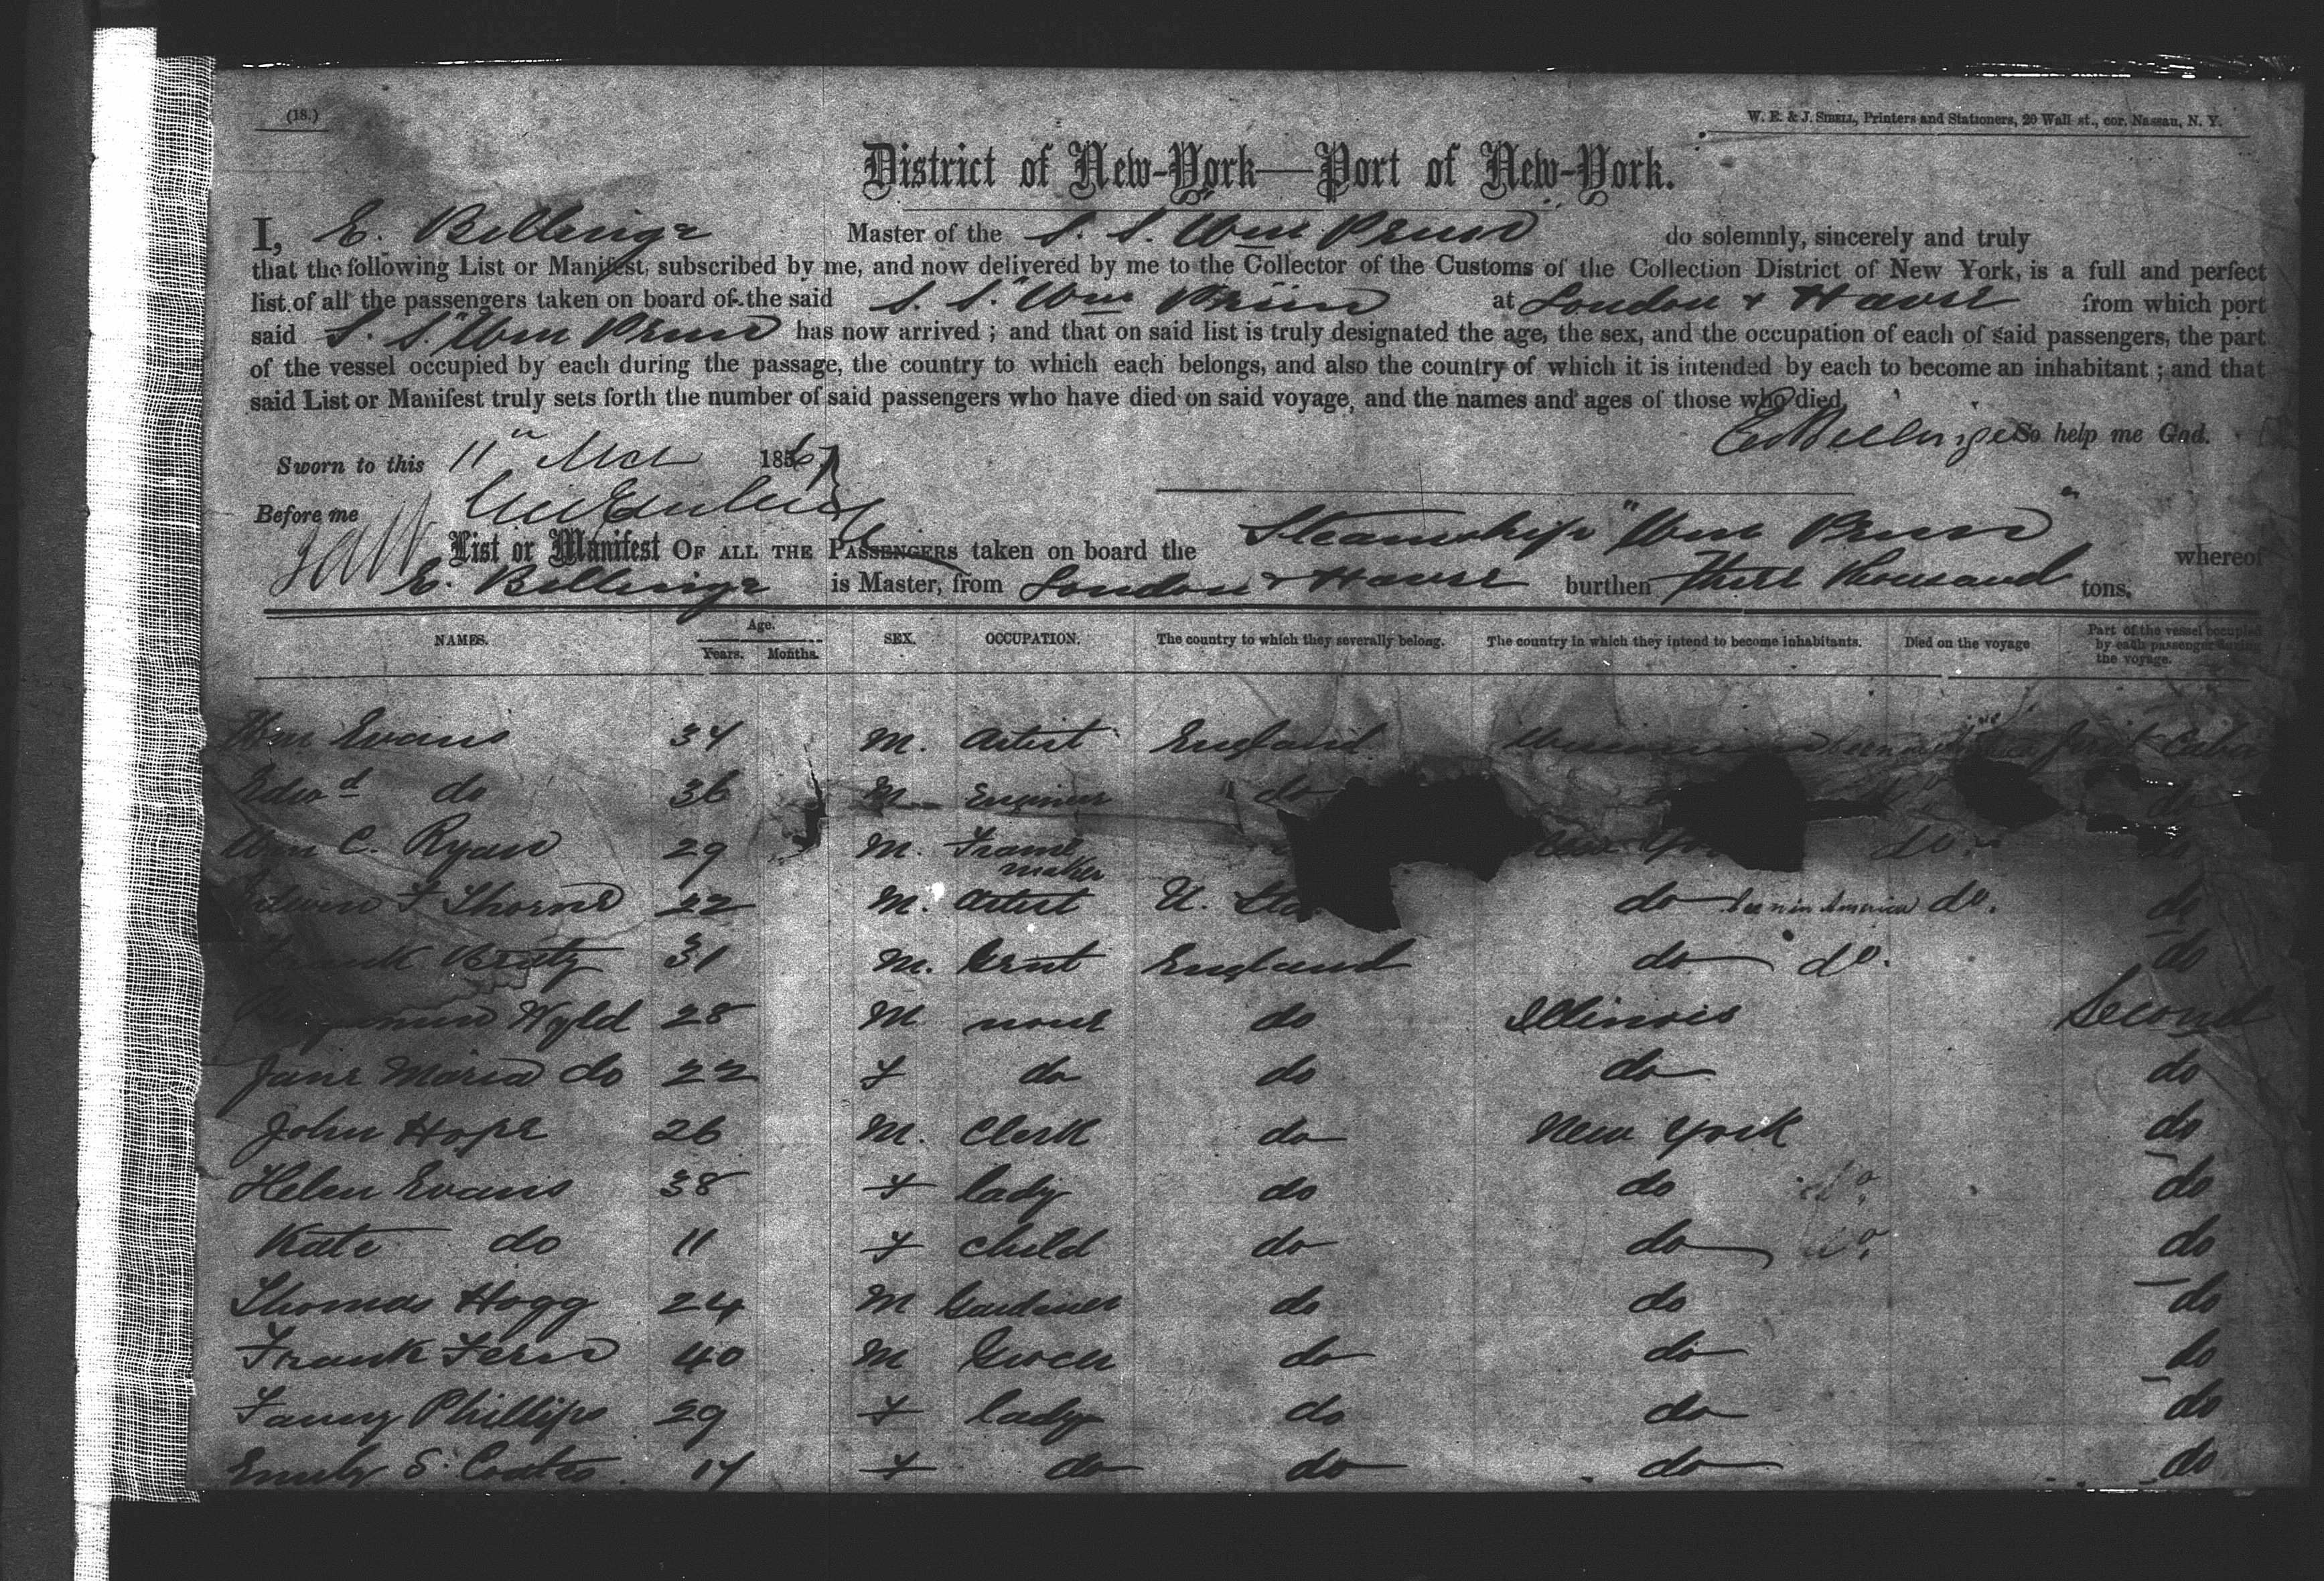 (18.)
W. E. & J. SIBELL, Printers and Stationers, 20 Wall st., cor. Nassau, N. Y.
District of New-York—Port of New-York.
I, E. Billinge Master of the S. S. "Wm Penn" do solemnly, sincerely and truly
that the following List or Manifest, subscribed by me, and now delivered by me to the Collector of the Customs of the Collection District of New York, is a full and perfect
list of all the passengers taken on board of the said S. S. "Wm Penn at London + Havre from which port
said S. S. "Wm Penn has now arrived ; and that on said list is truly designated the age, the sex, and the occupation of each of said passengers, the part
of the vessel occupied by each during the passage, the country to which each belongs, and also the country of which it is intended by each to become an inhabitant ; and that
said List or Manifest truly sets forth the number of said passengers who have died on said voyage, and the names and ages of those who died.
Billinge So help me God.
Sworn to this 11th Mch 1867
Before me
List or Manifest OF ALL THE PASSENGERS taken on board the Steamship "Wm Penn" whereof
E. Billinge is Master, from London + Havre burthen Three Thousand tons.
NAMES. Age. Years. Months. SEX. OCCUPATION. The country to which they severally belong. The country in which they intend to become inhabitants. Died on the voyage Part of the vessel occupied by each passenger during the voyage.
Wm Evans 34 M. Artist England First Cabin
Edwd do 36 M Engineer do do
Wm C. Ryan 29 M. Frame maker New Yo do. do
Edwin F Thorne 22 M. Artist U. Sta do been in America do. do
Frank 31 M. Gent England do do. do
Benjamin Wyld 28 M none do Illinois Second
Jane Maria do 22 F do do do do
John Hope 26 M. Clerk do New York do
Helen Evans 38 F lady do do do. do
Kate do 11 F child do do do. do
Thomas Hogg 24 M Gardener do do do
Frank Fern 40 M Grocer do do do
Fanny Phillips 29 F lady do do do
Emily S. Coates 17 F do do do do